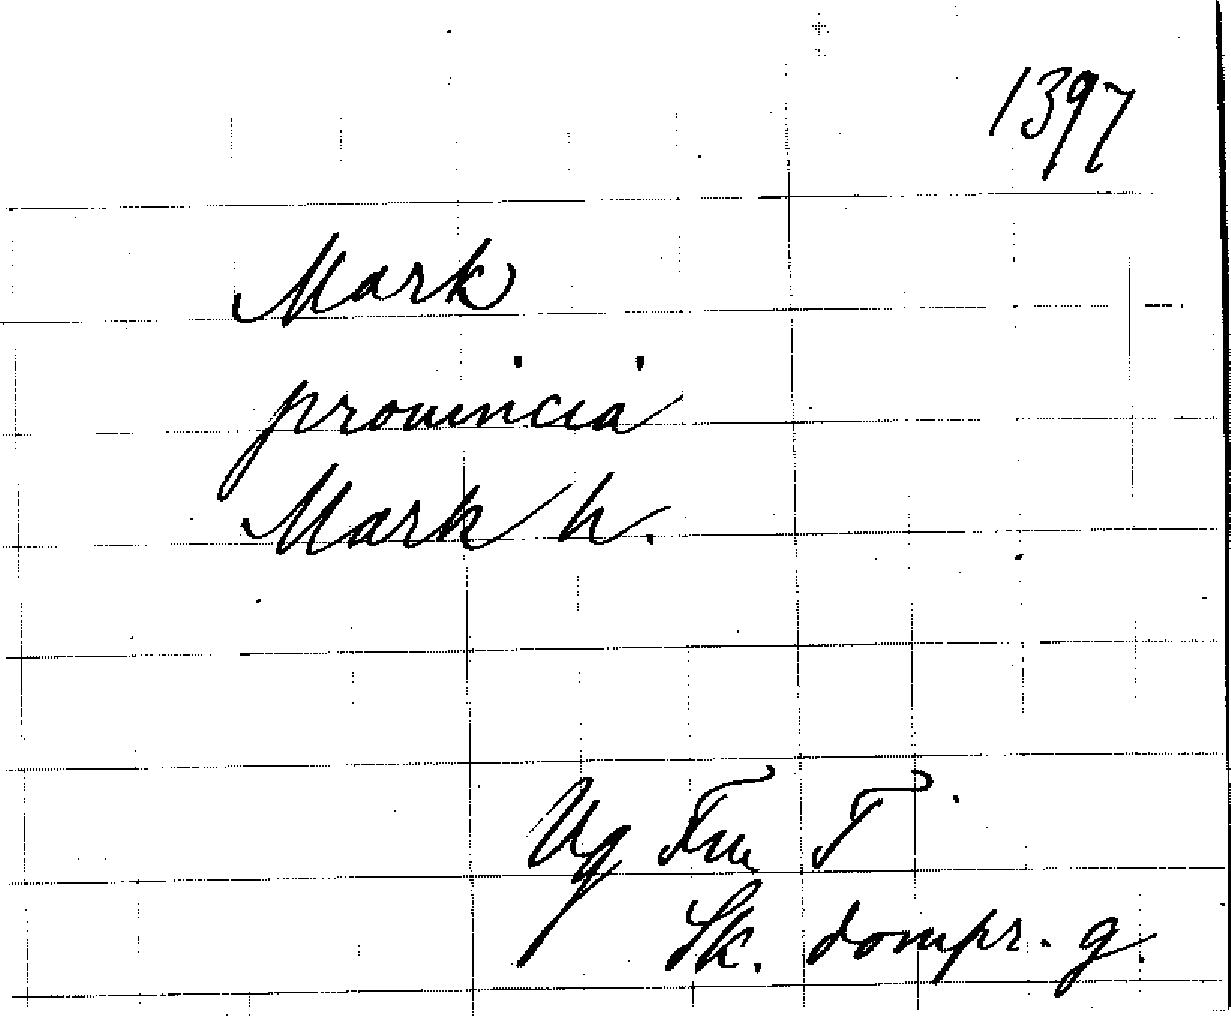 1397
Mark
prouincia
Mark h.
Ug Fru T
Sk. dompr. g.